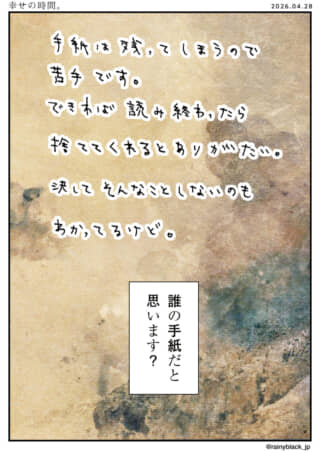 幸せの時間。
2026.04.28
手紙は残ってしまうので
苦手です。
できれば読み終わったら
捨ててくれるとありがたい。
決してそんなことしないのも
わかってるけど。
誰の手紙だと
思います？
@rainyblack_jp